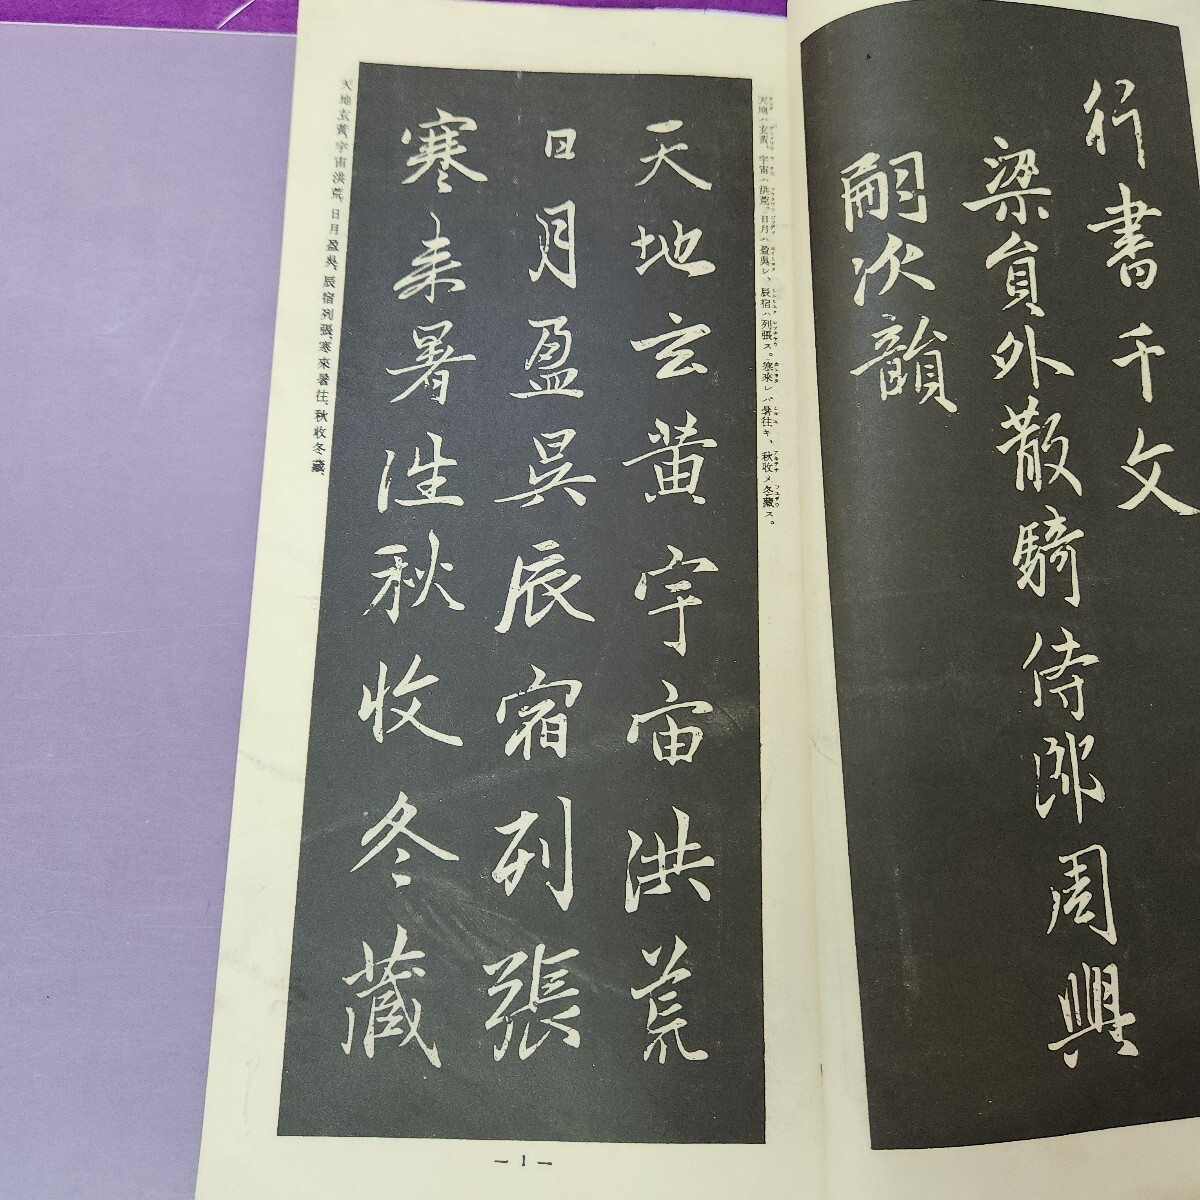 行書千文
梁員外散騎侍郎周興
嗣次韻
天地ハ玄黄、宇宙ハ洪荒。日月ハ盈昃シ、辰宿ハ列張ス。寒來レバ暑往キ、秋收メ冬藏ス。
天地玄黄宇宙洪荒
日月盈昃辰宿列張
寒来暑往秋收冬藏
天地玄黄宇宙洪荒、日月盈昃、辰宿列張、寒來暑往、秋收冬藏、
— 1 —